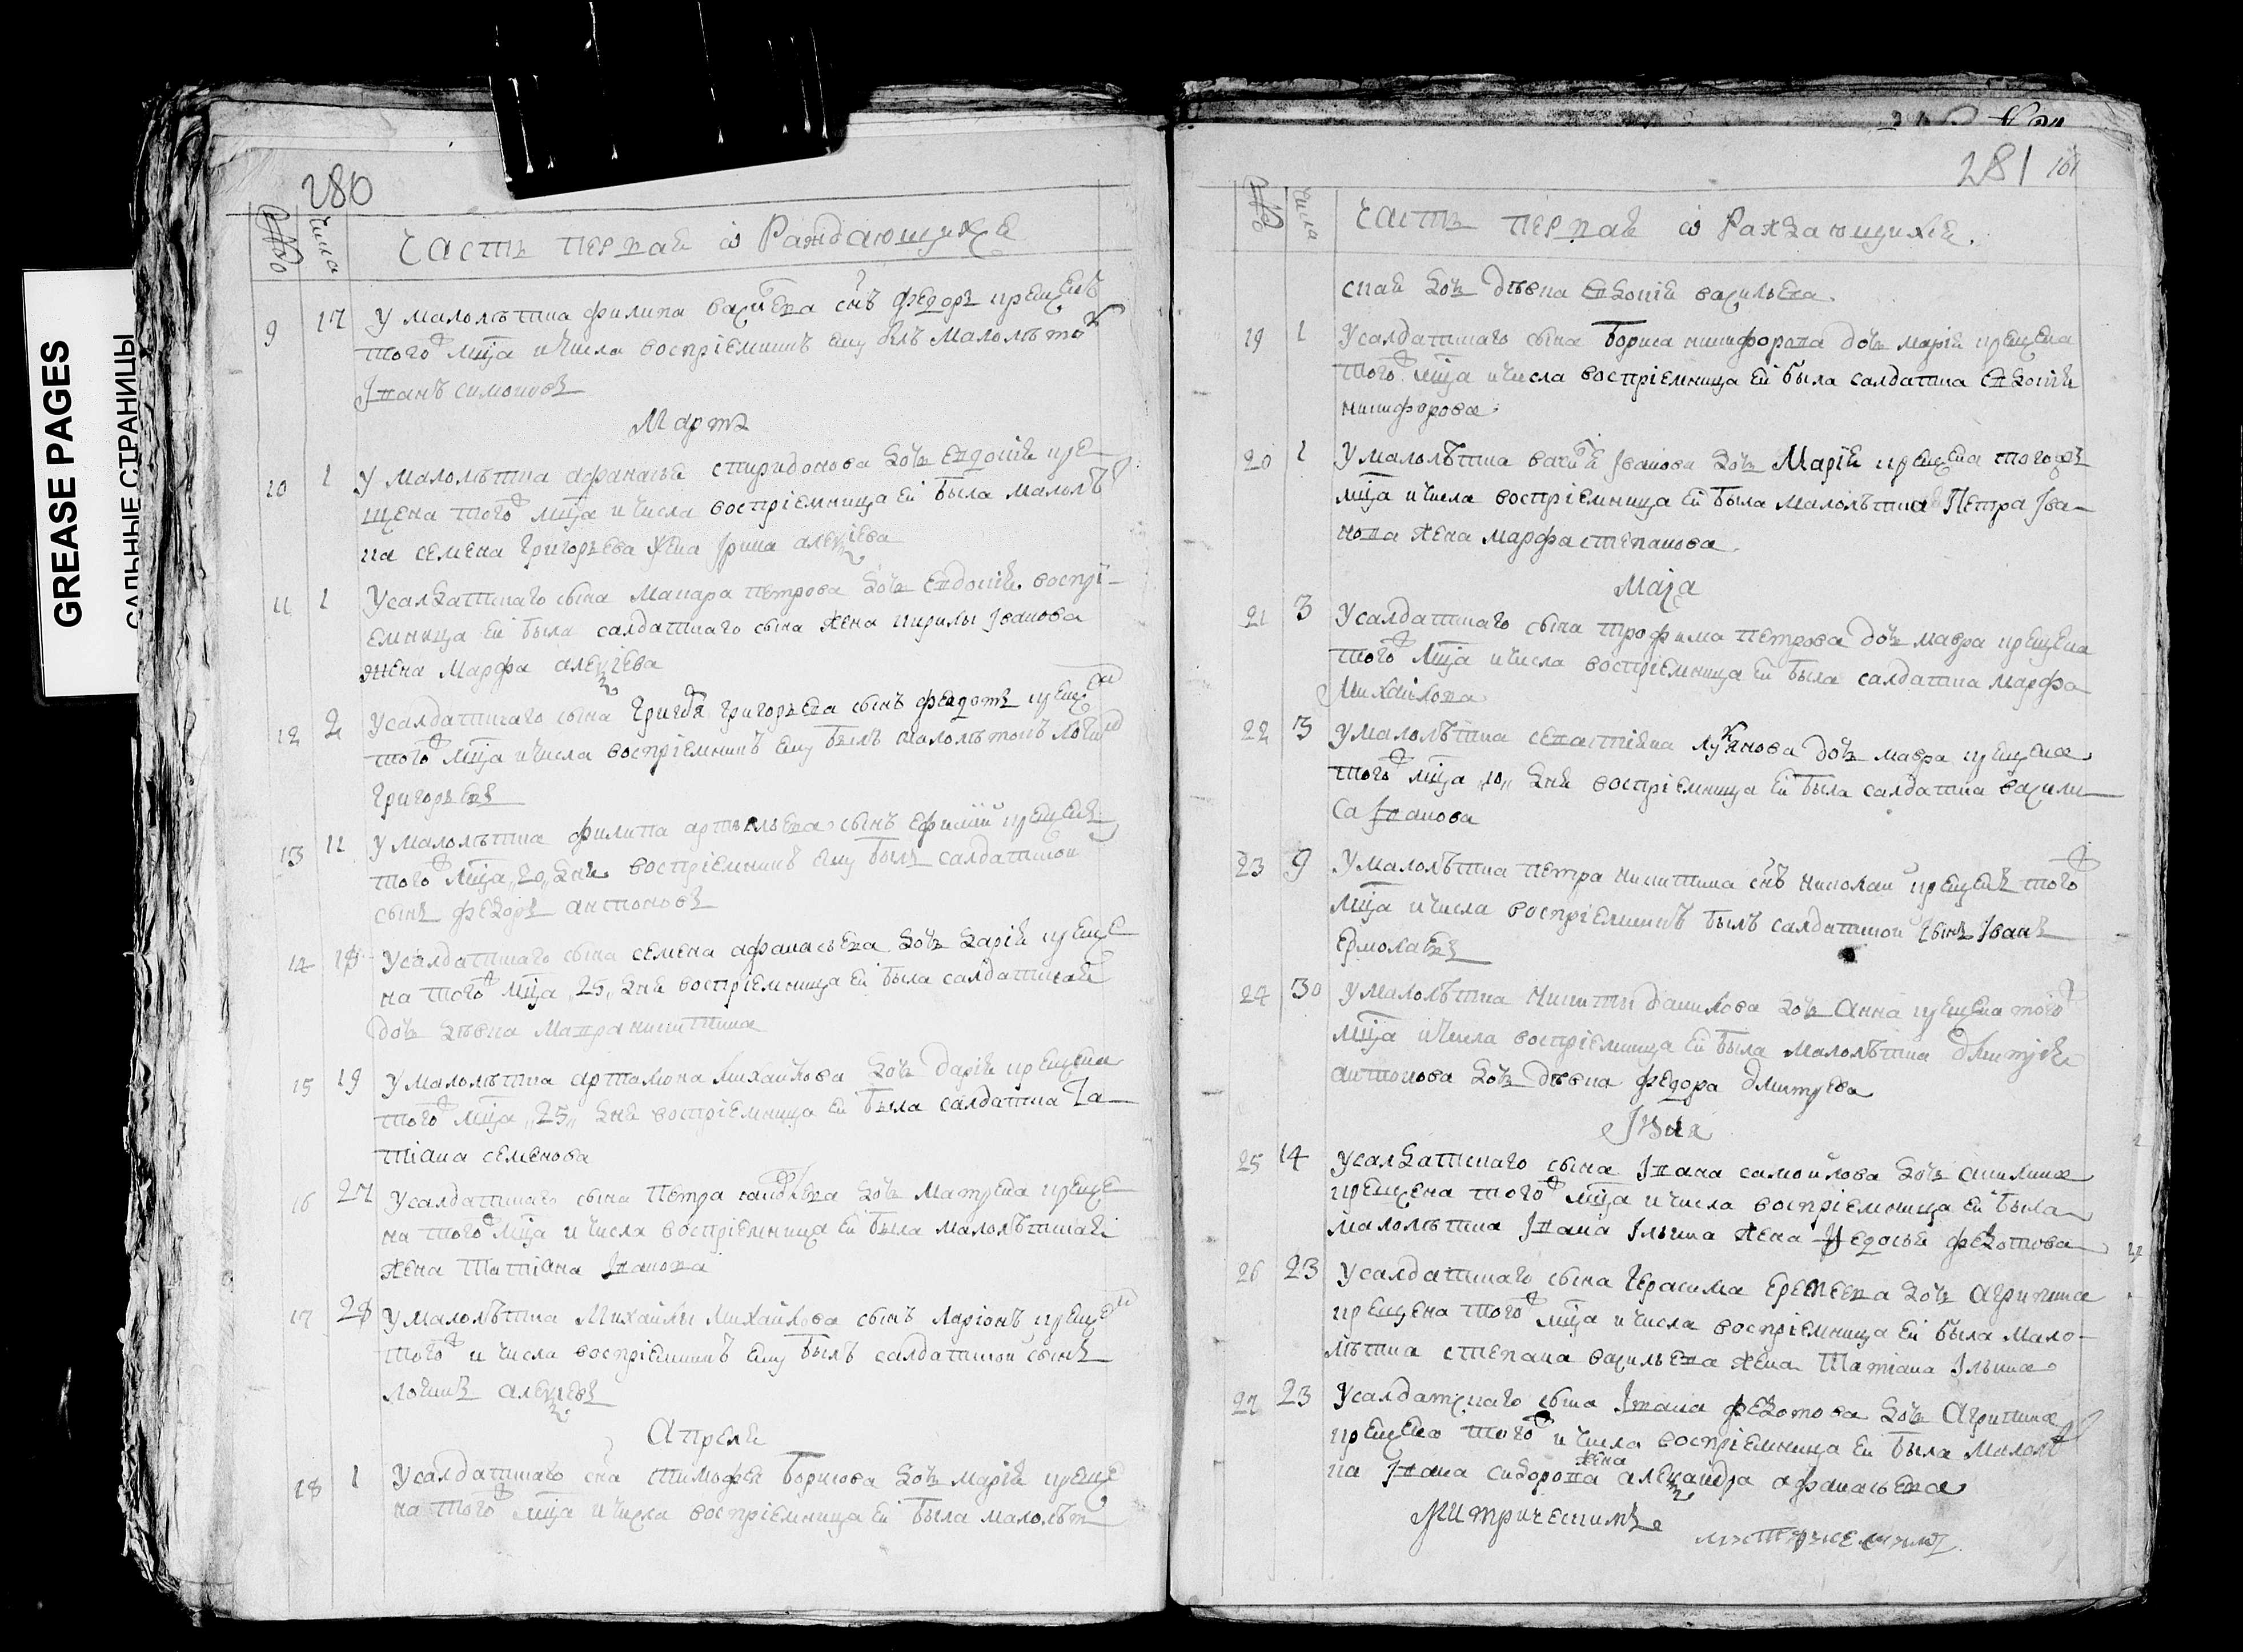 GREASE PAGES
САЛЬНЫЕ СТРАНИЦЫ
280
№ числа Часть первая ѡ Раждающихся
9 17 У малолѣтка филипа василева снъ федоръ крещенъ
того мца и числа воспрiемникъ ему былъ малолѣтокъ
Iванъ симоновъ
Мартъ
10 1 У малолѣтка афанасья спиридонова дочь евдокiя кре
щена того мца и числа воспрiемница ей была малолѣт
ка семена григорьева жена Iрина алексiева
11 1 У салдатскаго сына макара петрова дочь евдокiя воспрi
емница ей была салдатскаго сына жена кирилы Iванова
жена Марфа алексiева
12 2 У салдатскаго сына григорья григорьева сынъ федотъ крещенъ
того мца и числа воспрiемникъ ему былъ малолѣтокъ логинъ
григорьевъ
13 11 У малолѣтка филипа артемьева сынъ ефимiй крещенъ
того мца 20 дня воспрiемникъ ему былъ салдатской
сынъ федоръ антоновъ
14 18 У салдатскаго сына семена афанасьева дочь дарiя креще
на того мца 25 дня воспрiемница ей была салдатская
дочь дѣвка мавра никитина
15 19 У малолѣтка артамона михайлова дочь дарiя крещена
того мца 25 дня воспрiемница ей была салдатка Та
тiана семенова
16 27 У салдатскаго сына петра дочь матрена креще
на того мца и числа воспрiемница ей была малолѣткая
жена татiана Iванова
17 28 У малолѣтка Михайлы михайлова сынъ ларiонъ крещенъ
того и числа воспрiемникъ ему былъ салдатской сынъ
логинъ алексiевъ
Апреля
18 1 У салдатскаго сна тимофея борисова дочь марiя креще
на того мца и числа воспрiемница ей была малолѣт
281 101
№ числа Часть первая ѡ Раждающихся
ская дочь дѣвка евдокiя василева
19 1 У салдатскаго сына бориса никифорова дочь марiя крещена
того мца и числа воспрiемница ей была салдатка евдокiя
никифорова
20 1 У малолѣтка Iванова дочь Марiя крещена тогожъ
мца и числа воспрiемница ей была малолѣтка Петра Iва
нова жена марфа степанова
Маiя
21 3 У салдатскаго сына трофима петрова дочь мавра крещена
того мца и числа воспрiемница ей была салдатка марфа
Михайлова
22 3 У малолѣтка севастiяна лукянова дочь мавра крещена
того мца 10 дня воспрiемница ей была салдатка васили
са Iванова
23 9 У малолѣтка петра никитина снъ николай крещенъ того
мца и числа воспрiемникъ былъ салдатской сынъ Iванъ
ермолаевъ
24 30 У малолѣтка никиты данилова дочь анна крещена того
мца и числа воспрiемница ей была малолѣтка дмитрiя
антонова дочь дѣвка федора дмитрева
Iюня
25 14 У салдатскаго сына Iвана самойлова дочь акилина
крещена того мца и числа воспрiемница ей была
малолѣтка Iвана Iльина жена федосья федотова
26 23 У салдатскаго сына герасима еремеева дочь агрипина
крещена того мца и числа воспрiемница ей была мало
лѣтка степана василева жена татiана Iльина
27 23 У салдатскаго сына Iвана федотова дочь агрипина
крещена того и числа воспрiемница ей была малолѣт
ка Iвана сидорова жена александра афанасьева